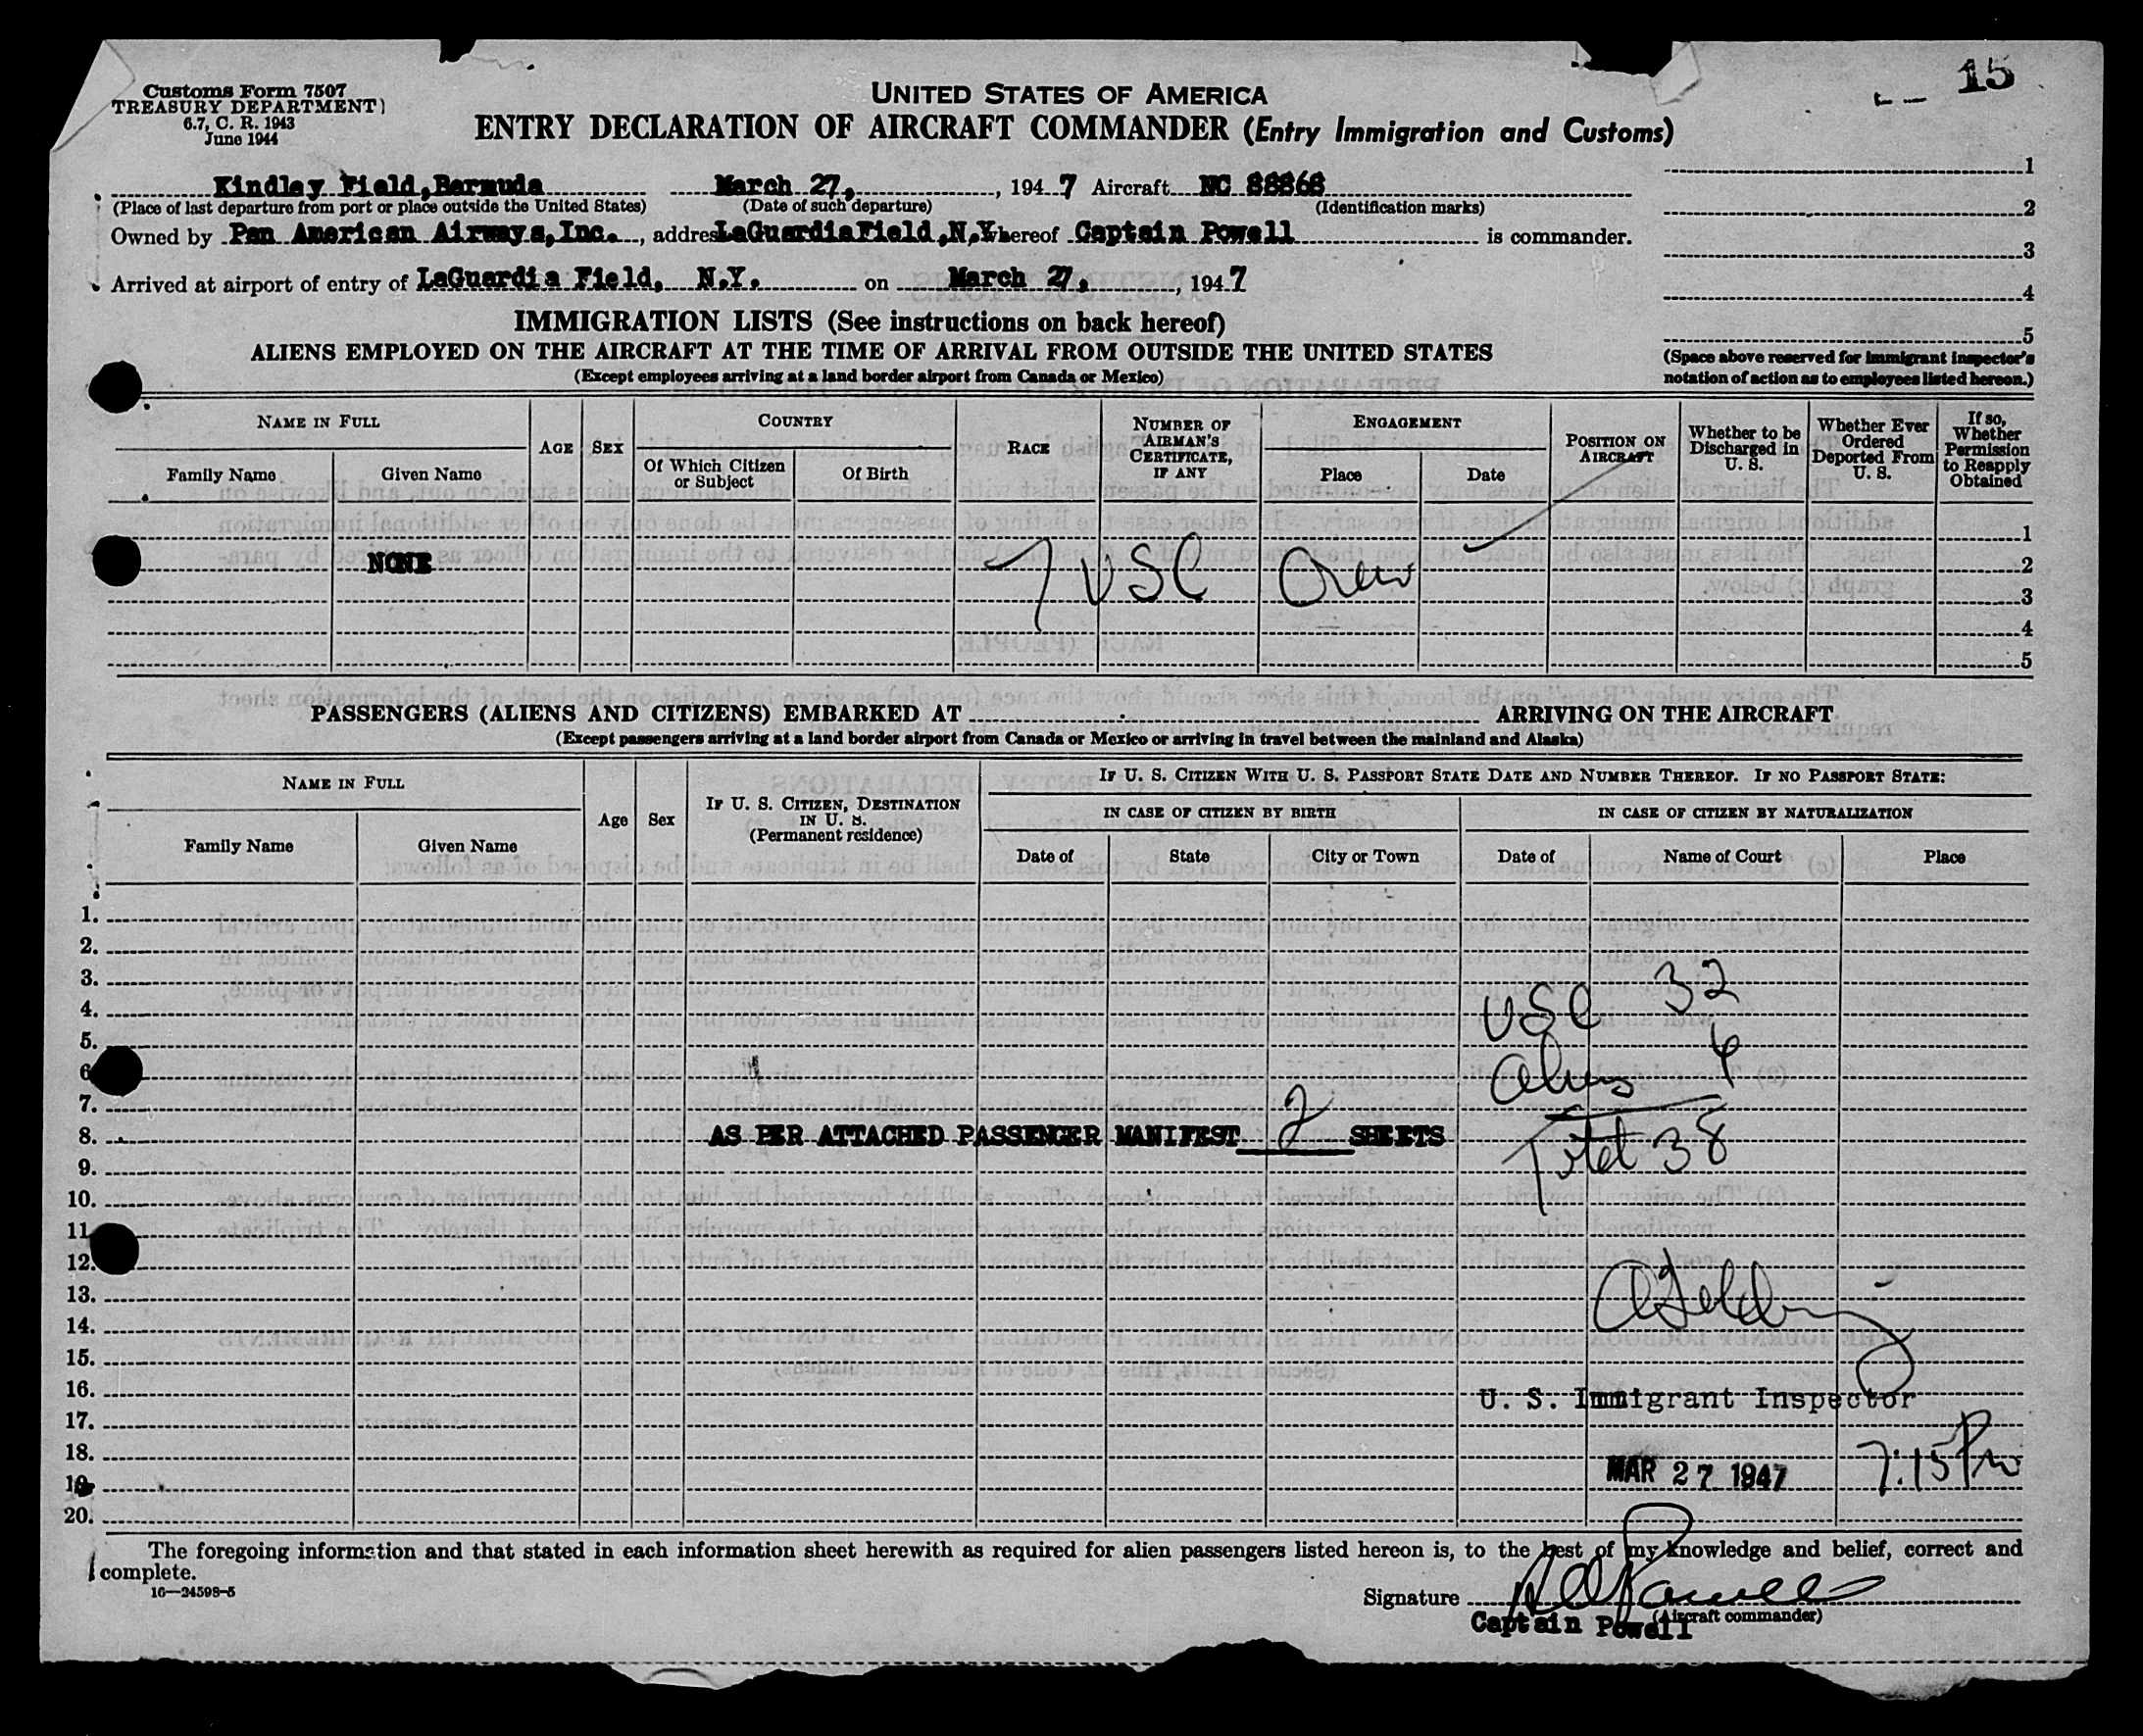 15
Customs Form 7507
TREASURY DEPARTMENT)
6.7, C. R. 1943
June 1944
UNITED STATES OF AMERICA
ENTRY DECLARATION OF AIRCRAFT COMMANDER (Entry Immigration and Customs)
Kindley Field, Bermuda March 27, 1947 Aircraft NC 88868
(Place of last departure from port or place outside the United States) (Date of such departure) (Identification marks)
Owned by Pan American Airways, Inc. , addres LaGuardia Field, N.Y. whereof Captain Powell is commander.
Arrived at airport of entry of LaGuardia Field, N.Y. on March 27, , 1947
1
2
3
4
5
(Space above reserved for immigrant inspector's
notation of action as to employees listed hereon.)
IMMIGRATION LISTS (See instructions on back hereof)
ALIENS EMPLOYED ON THE AIRCRAFT AT THE TIME OF ARRIVAL FROM OUTSIDE THE UNITED STATES
(Except employees arriving at a land border airport from Canada or Mexico)
NAME IN FULL
Family Name
Given Name
AGE
SEX
COUNTRY
Of Which Citizen
or Subject
Of Birth
RACE
NUMBER OF
AIRMAN'S
CERTIFICATE,
IF ANY
ENGAGEMENT
Place
Date
POSITION ON
AIRCRAFT
Whether to be
Discharged in
U. S.
Whether Ever
Ordered
Deported From
U. S.
If so,
Whether
Permission
to Reapply
Obtained
1
NONE 7 USC Crew 2
3
4
5
PASSENGERS (ALIENS AND CITIZENS) EMBARKED AT ARRIVING ON THE AIRCRAFT
(Except passengers arriving at a land border airport from Canada or Mexico or arriving in travel between the mainland and Alaska)
NAME IN FULL
Family Name
Given Name
Age
Sex
IF U. S. CITIZEN, DESTINATION
IN U. S.
(Permanent residence)
IF U. S. CITIZEN WITH U. S. PASSPORT STATE DATE AND NUMBER THEREOF. IF NO PASSPORT STATE:
IN CASE OF CITIZEN BY BIRTH
Date of
State
City or Town
IN CASE OF CITIZEN BY NATURALIZATION
Date of
Name of Court
Place
1.
2.
3.
4. USC 32
5.
6 Aliens 6
7.
8. AS PER ATTACHED PASSENGER MANIFEST 2 SHEETS Total 38
9.
10.
11
12.
13.
14.
15.
16. U. S. Immigrant Inspector
17.
18. MAR 27 1947 7:15 Pm
19
20.
The foregoing information and that stated in each information sheet herewith as required for alien passengers listed hereon is, to the best of my knowledge and belief, correct and
complete.
16—24598-5
Signature
(Aircraft commander)
Captain Powell